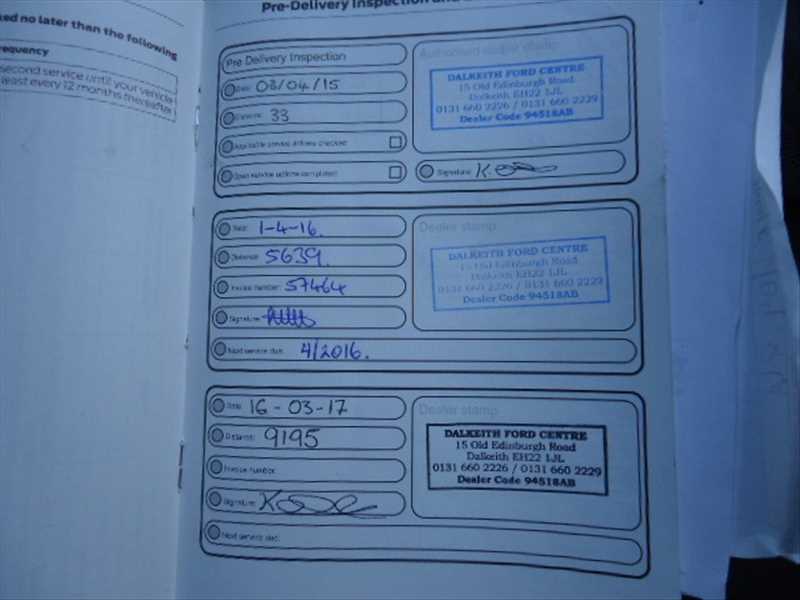 ked no later than the following
requency
second service until your vehicle
least every 12 months thereafter
Pre-Delivery Inspection and
Pre Delivery Inspection
Date: 03/04/15
Distance: 33
Applicable service actions checked
Open service actions completed
Authorised dealer stamp
DALKEITH FORD CENTRE
15 Old Edinburgh Road
Dalkeith EH22 1JL
0131 660 2226 / 0131 660 2229
Dealer Code 94518AB
Signature: K.
Date: 1-4-16.
Distance: 5639.
Invoice number: 57464
Signature:
Next service due: 4/2016.
Dealer stamp
DALKEITH FORD CENTRE
15 Old Edinburgh Road
Dalkeith EH22 1JL
0131 660 2226 / 0131 660 2229
Dealer Code 94518AB
Date: 16-03-17
Distance: 9195
Invoice number:
Signature:
Next service due:
Dealer stamp
DALKEITH FORD CENTRE
15 Old Edinburgh Road
Dalkeith EH22 1JL
0131 660 2226 / 0131 660 2229
Dealer Code 94518AB